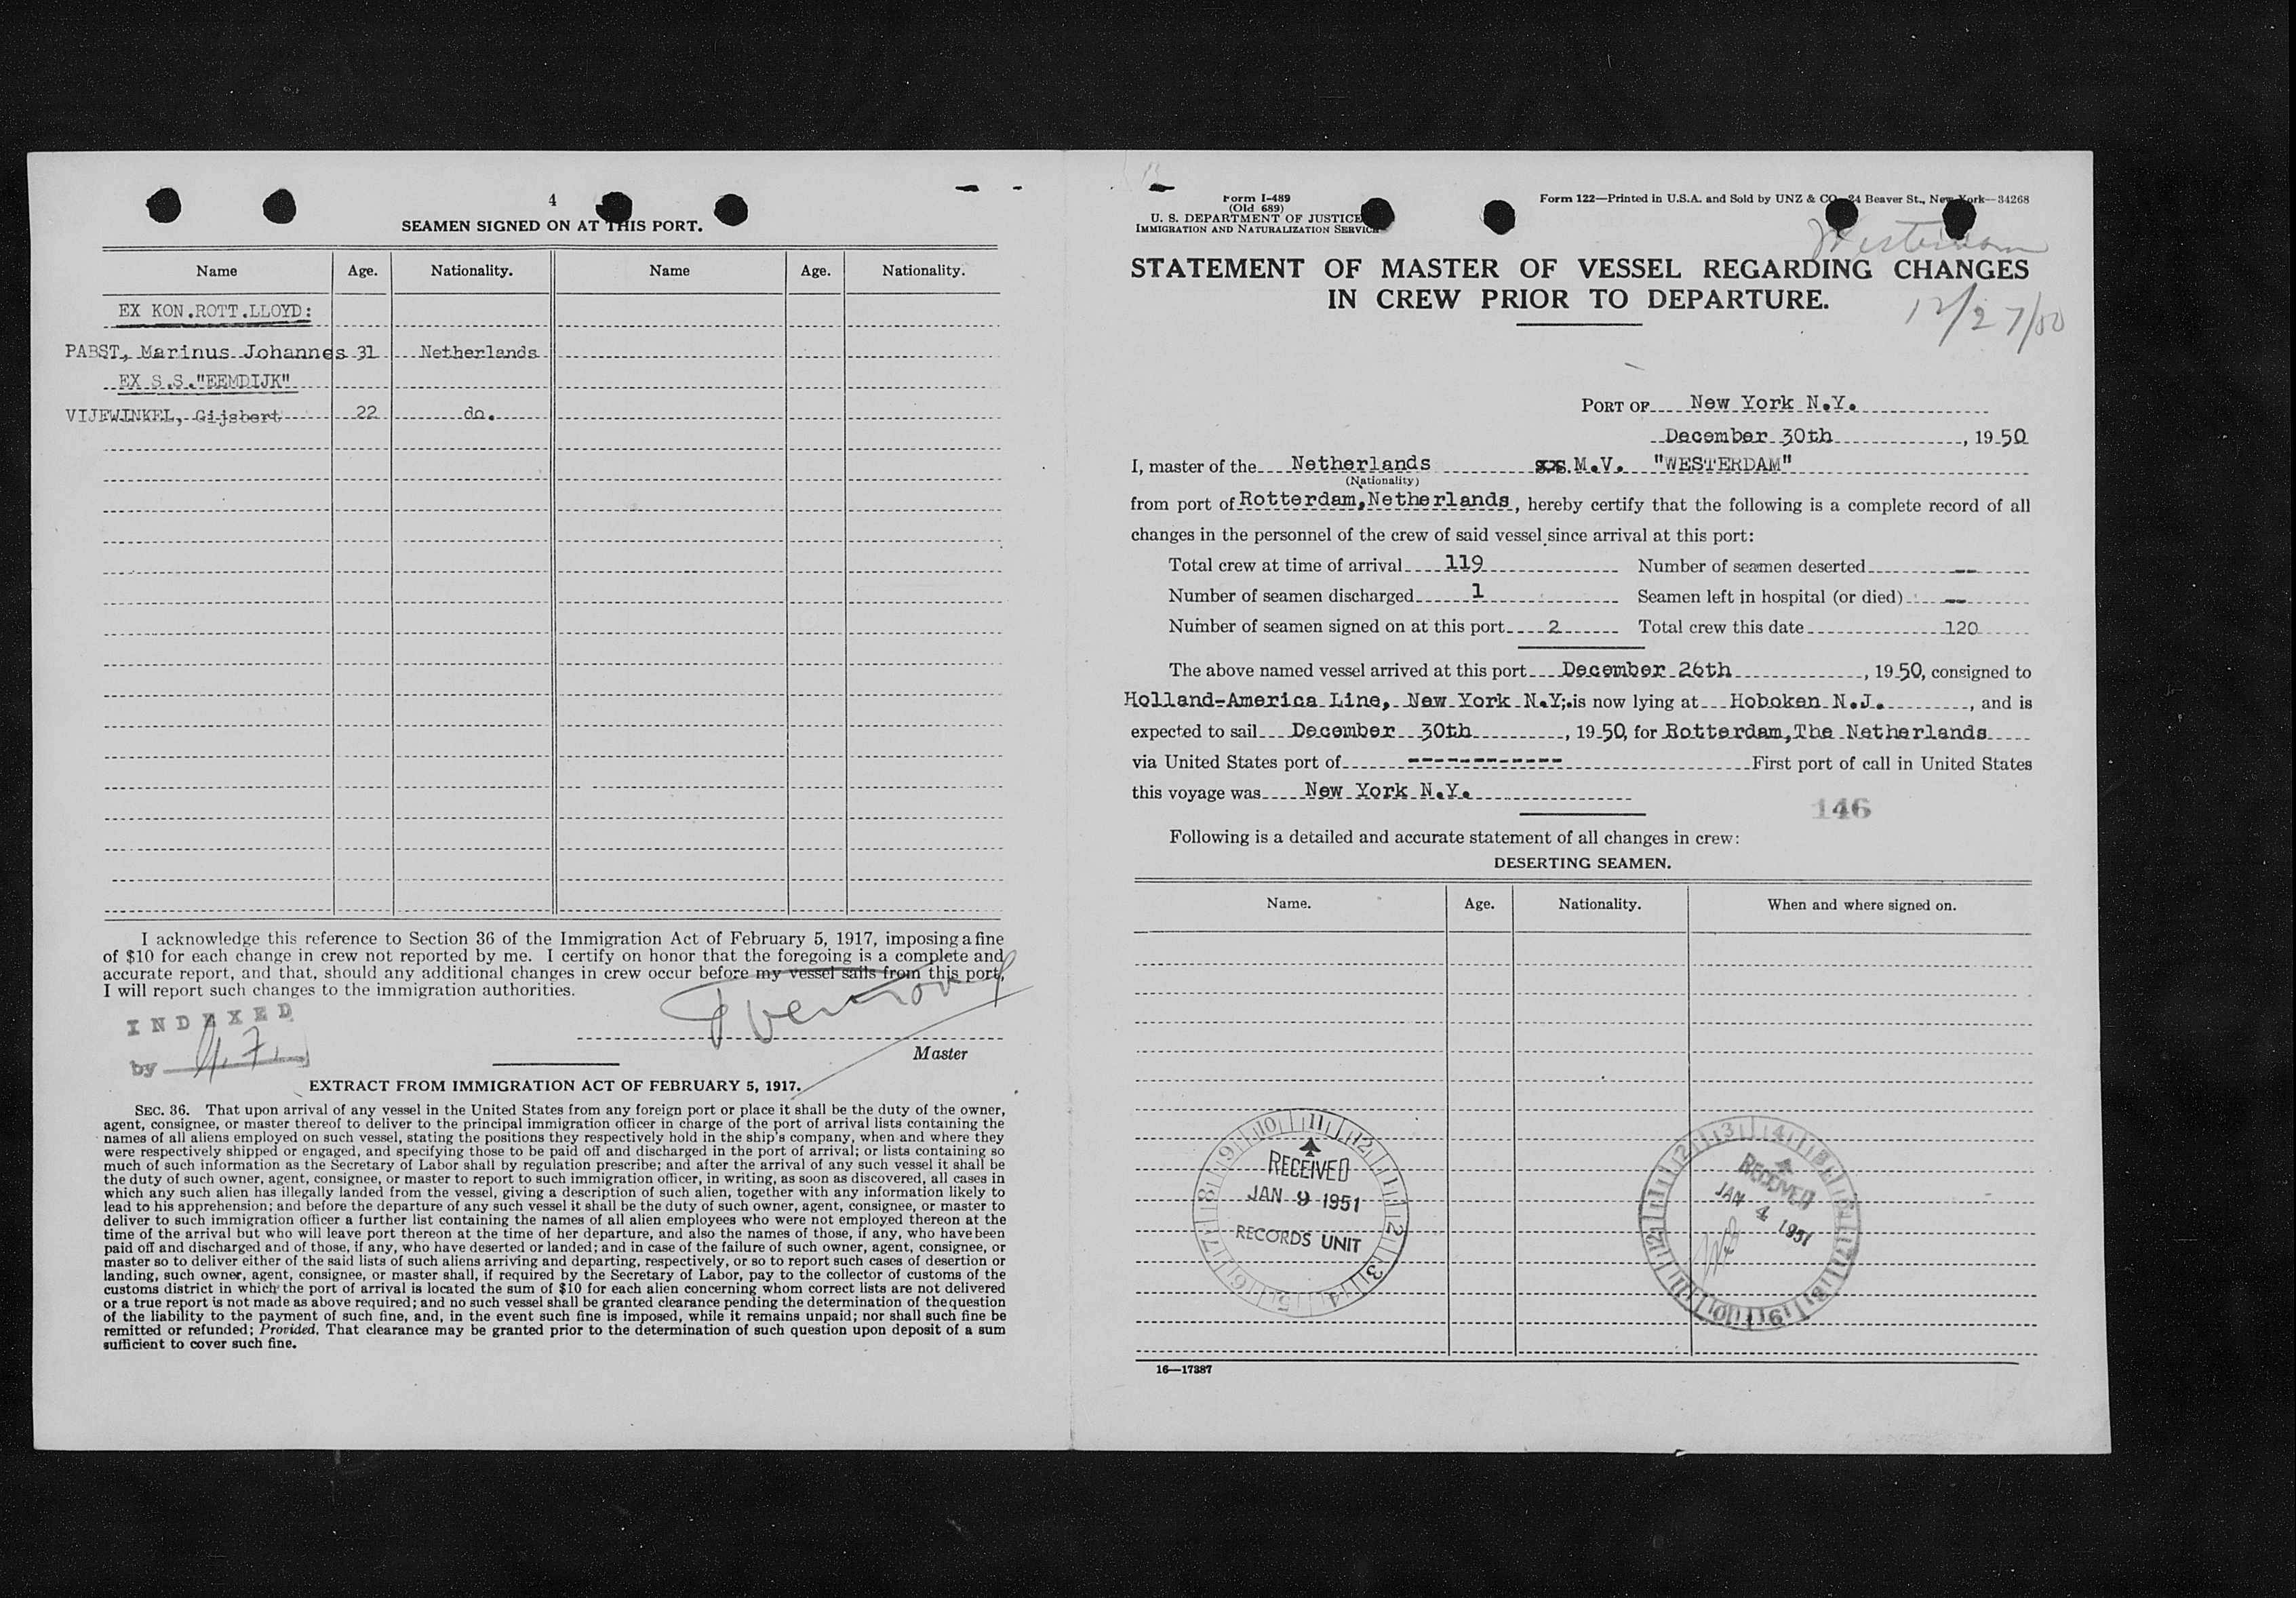 4
SEAMEN SIGNED ON AT THIS PORT.
Name Age. Nationality. Name Age. Nationality.
EX KON.ROTT.LLOYD:
PABST, Marinus Johannes 31 Netherlands
EX S.S."EEMDIJK"
VIJFWINKEL, Gijsbert 22 do.
I acknowledge this reference to Section 36 of the Immigration Act of February 5, 1917, imposing a fine
of $10 for each change in crew not reported by me. I certify on honor that the foregoing is a complete and
accurate report, and that, should any additional changes in crew occur before my vessel sails from this port,
I will report such changes to the immigration authorities.
INDEXED
by
Master
EXTRACT FROM IMMIGRATION ACT OF FEBRUARY 5, 1917.
SEC. 36. That upon arrival of any vessel in the United States from any foreign port or place it shall be the duty of the owner,
agent, consignee, or master thereof to deliver to the principal immigration officer in charge of the port of arrival lists containing the
names of all aliens employed on such vessel, stating the positions they respectively hold in the ship's company, when and where they
were respectively shipped or engaged, and specifying those to be paid off and discharged in the port of arrival; or lists containing so
much of such information as the Secretary of Labor shall by regulation prescribe; and after the arrival of any such vessel it shall be
the duty of such owner, agent, consignee, or master to report to such immigration officer, in writing, as soon as discovered, all cases in
which any such alien has illegally landed from the vessel, giving a description of such alien, together with any information likely to
lead to his apprehension; and before the departure of any such vessel it shall be the duty of such owner, agent, consignee, or master to
deliver to such immigration officer a further list containing the names of all alien employees who were not employed thereon at the
time of the arrival but who will leave port thereon at the time of her departure, and also the names of those, if any, who have been
paid off and discharged and of those, if any, who have deserted or landed; and in case of the failure of such owner, agent, consignee, or
master so to deliver either of the said lists of such aliens arriving and departing, respectively, or so to report such cases of desertion or
landing, such owner, agent, consignee, or master shall, if required by the Secretary of Labor, pay to the collector of customs of the
customs district in which the port of arrival is located the sum of $10 for each alien concerning whom correct lists are not delivered
or a true report is not made as above required; and no such vessel shall be granted clearance pending the determination of the question
of the liability to the payment of such fine, and, in the event such fine is imposed, while it remains unpaid; nor shall such fine be
remitted or refunded; Provided, That clearance may be granted prior to the determination of such question upon deposit of a sum
sufficient to cover such fine.
Form I-489
(Old 689)
U. S. DEPARTMENT OF JUSTICE
IMMIGRATION AND NATURALIZATION SERVICE
Form 122—Printed in U.S.A. and Sold by UNZ & CO. 24 Beaver St., New York—34268
Westerdam
12/27/50
STATEMENT OF MASTER OF VESSEL REGARDING CHANGES
IN CREW PRIOR TO DEPARTURE.
PORT OF New York N.Y.
December 30th, 1950
I, master of the Netherlands s.s. M.V. "WESTERDAM"
(Nationality)
from port of Rotterdam, Netherlands, hereby certify that the following is a complete record of all
changes in the personnel of the crew of said vessel since arrival at this port:
Total crew at time of arrival 119 Number of seamen deserted --
Number of seamen discharged 1 Seamen left in hospital (or died) --
Number of seamen signed on at this port 2 Total crew this date 120
The above named vessel arrived at this port December 26th, 1950, consigned to
Holland-America Line, New York N.Y; is now lying at Hoboken N.J., and is
expected to sail December 30th, 1950, for Rotterdam, The Netherlands
via United States port of ------------ First port of call in United States
this voyage was New York N.Y.
146
Following is a detailed and accurate statement of all changes in crew:
DESERTING SEAMEN.
Name. Age. Nationality. When and where signed on.
RECEIVED
JAN 9 1951
RECORDS UNIT
RECEIVED
JAN 4 1951
16—17387